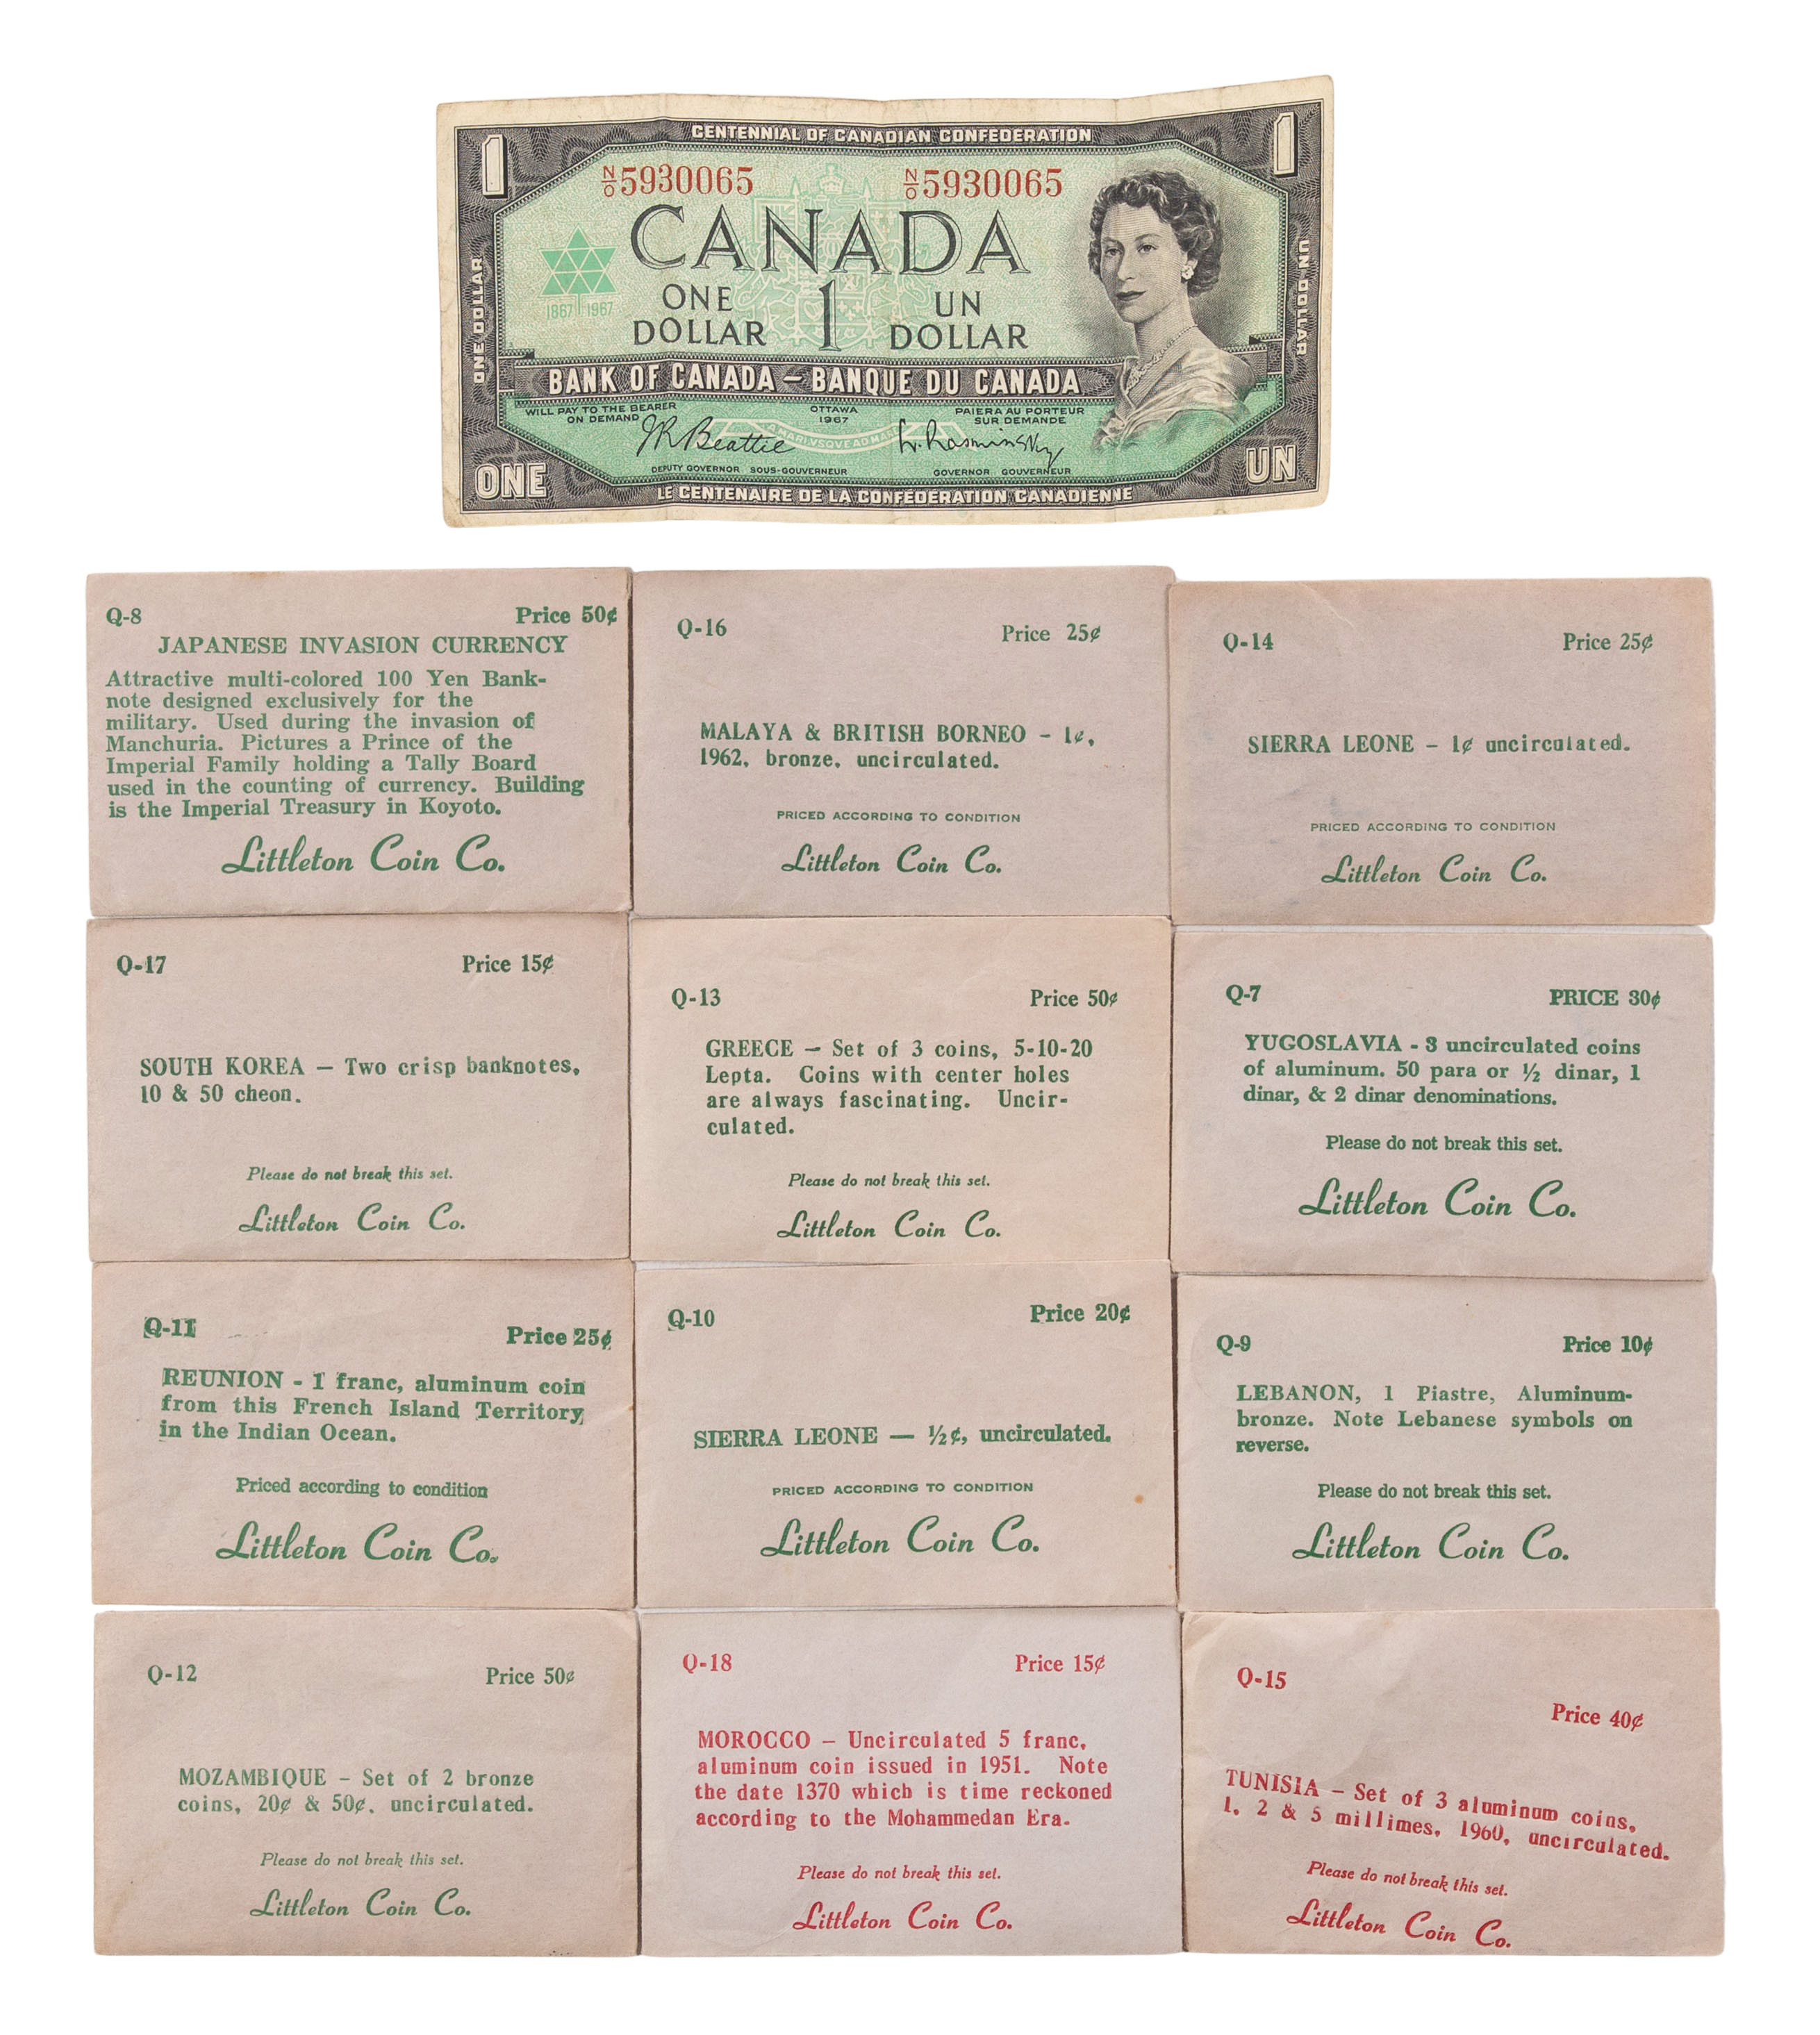 CENTENNIAL OF CANADIAN CONFEDERATION
1 1
N/O 5930065 N/O 5930065
CANADA
1867 1967
ONE DOLLAR
UN DOLLAR
ONE 1 UN
DOLLAR DOLLAR
BANK OF CANADA – BANQUE DU CANADA
WILL PAY TO THE BEARER
ON DEMAND
OTTAWA
1967
PAIERA AU PORTEUR
SUR DEMANDE
A MARI VSQVE AD MARE
JR Beattie L. Rasminsky
DEPUTY GOVERNOR SOUS-GOUVERNEUR GOVERNOR GOUVERNEUR
ONE UN
LE CENTENAIRE DE LA CONFÉDÉRATION CANADIENNE
Q-8 Price 50¢
JAPANESE INVASION CURRENCY
Attractive multi-colored 100 Yen Bank-
note designed exclusively for the
military. Used during the invasion of
Manchuria. Pictures a Prince of the
Imperial Family holding a Tally Board
used in the counting of currency. Building
is the Imperial Treasury in Koyoto.
Littleton Coin Co.
Q-16 Price 25¢
MALAYA & BRITISH BORNEO – 1¢,
1962, bronze, uncirculated.
PRICED ACCORDING TO CONDITION
Littleton Coin Co.
Q-14 Price 25¢
SIERRA LEONE – 1¢ uncirculated.
PRICED ACCORDING TO CONDITION
Littleton Coin Co.
Q-17 Price 15¢
SOUTH KOREA – Two crisp banknotes,
10 & 50 cheon.
Please do not break this set.
Littleton Coin Co.
Q-13 Price 50¢
GREECE – Set of 3 coins, 5-10-20
Lepta. Coins with center holes
are always fascinating. Uncir-
culated.
Please do not break this set.
Littleton Coin Co.
Q-7 PRICE 30¢
YUGOSLAVIA - 3 uncirculated coins
of aluminum. 50 para or ½ dinar, 1
dinar, & 2 dinar denominations.
Please do not break this set.
Littleton Coin Co.
Q-11 Price 25¢
REUNION - 1 franc, aluminum coin
from this French Island Territory
in the Indian Ocean.
Priced according to condition
Littleton Coin Co.
Q-10 Price 20¢
SIERRA LEONE — ½¢, uncirculated.
PRICED ACCORDING TO CONDITION
Littleton Coin Co.
Q-9 Price 10¢
LEBANON, 1 Piastre, Aluminum-
bronze. Note Lebanese symbols on
reverse.
Please do not break this set.
Littleton Coin Co.
Q-12 Price 50¢
MOZAMBIQUE – Set of 2 bronze
coins, 20¢ & 50¢, uncirculated.
Please do not break this set.
Littleton Coin Co.
Q-18 Price 15¢
MOROCCO – Uncirculated 5 franc,
aluminum coin issued in 1951. Note
the date 1370 which is time reckoned
according to the Mohammedan Era.
Please do not break this set.
Littleton Coin Co.
Q-15
Price 40¢
TUNISIA – Set of 3 aluminum coins,
1, 2 & 5 millimes, 1960, uncirculated.
Please do not break this set.
Littleton Coin Co.